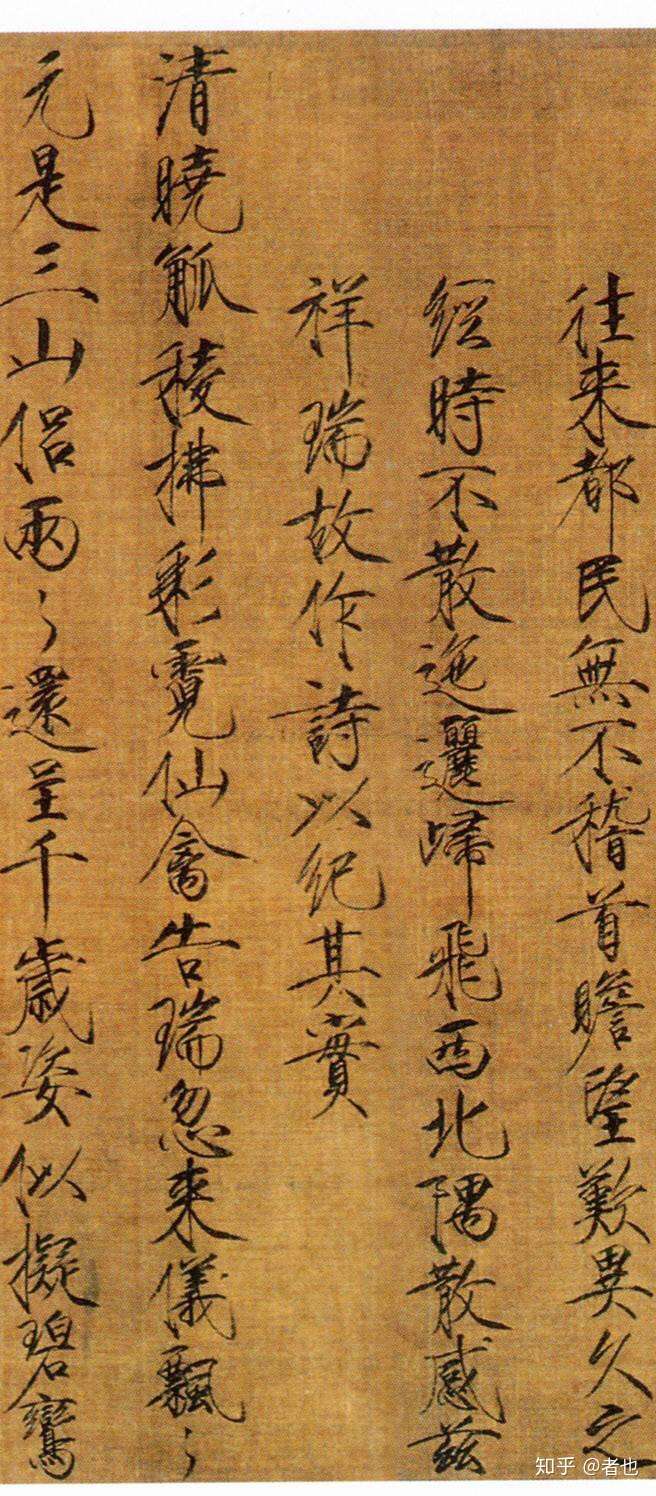 往来都民無不稽首瞻望歎異久之
經時不散迤邐歸飛西北隅散感茲
祥瑞故作詩以紀其實
清曉觚稜拂彩霓仙禽告瑞忽来儀飄々
元是三山侶兩々還呈千歲姿似擬碧鸞
知乎 @者也